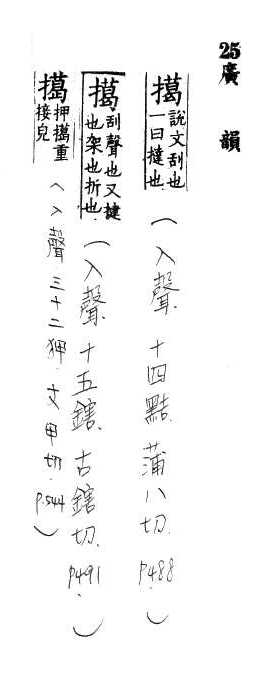 25廣韻
擖說文刮也一曰撻也(入聲.十四黠.蒲八切.p488.)
擖刮聲也又撻也架也折也(入聲.十五鎋.古鎋切.p491.)
擖押擖重接皃(入聲.三十二狎.丈甲切.p.544)